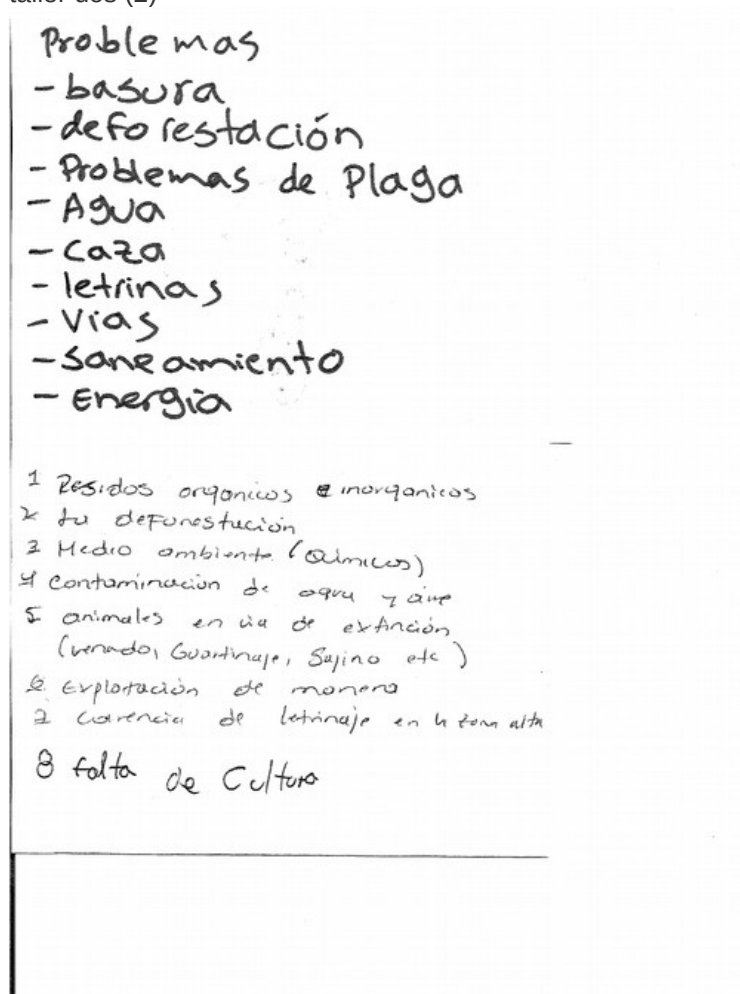 taller dos (2)
Problemas
- basura
- deforestación
- Problemas de Plaga
- Agua
- Caza
- letrinas
- Vias
- Saneamiento
- Energia
1 Residos organicos e inorganicos
2 la deforestación
3 Medio ambiente (Quimicos)
4 Contaminación de agua y aire
5 animales en via de extinción
(venado, Guartinaje, Sajino etc)
6 Explotación de
7 Carencia de letrinaje en la zona alta
8 falta de Cultura